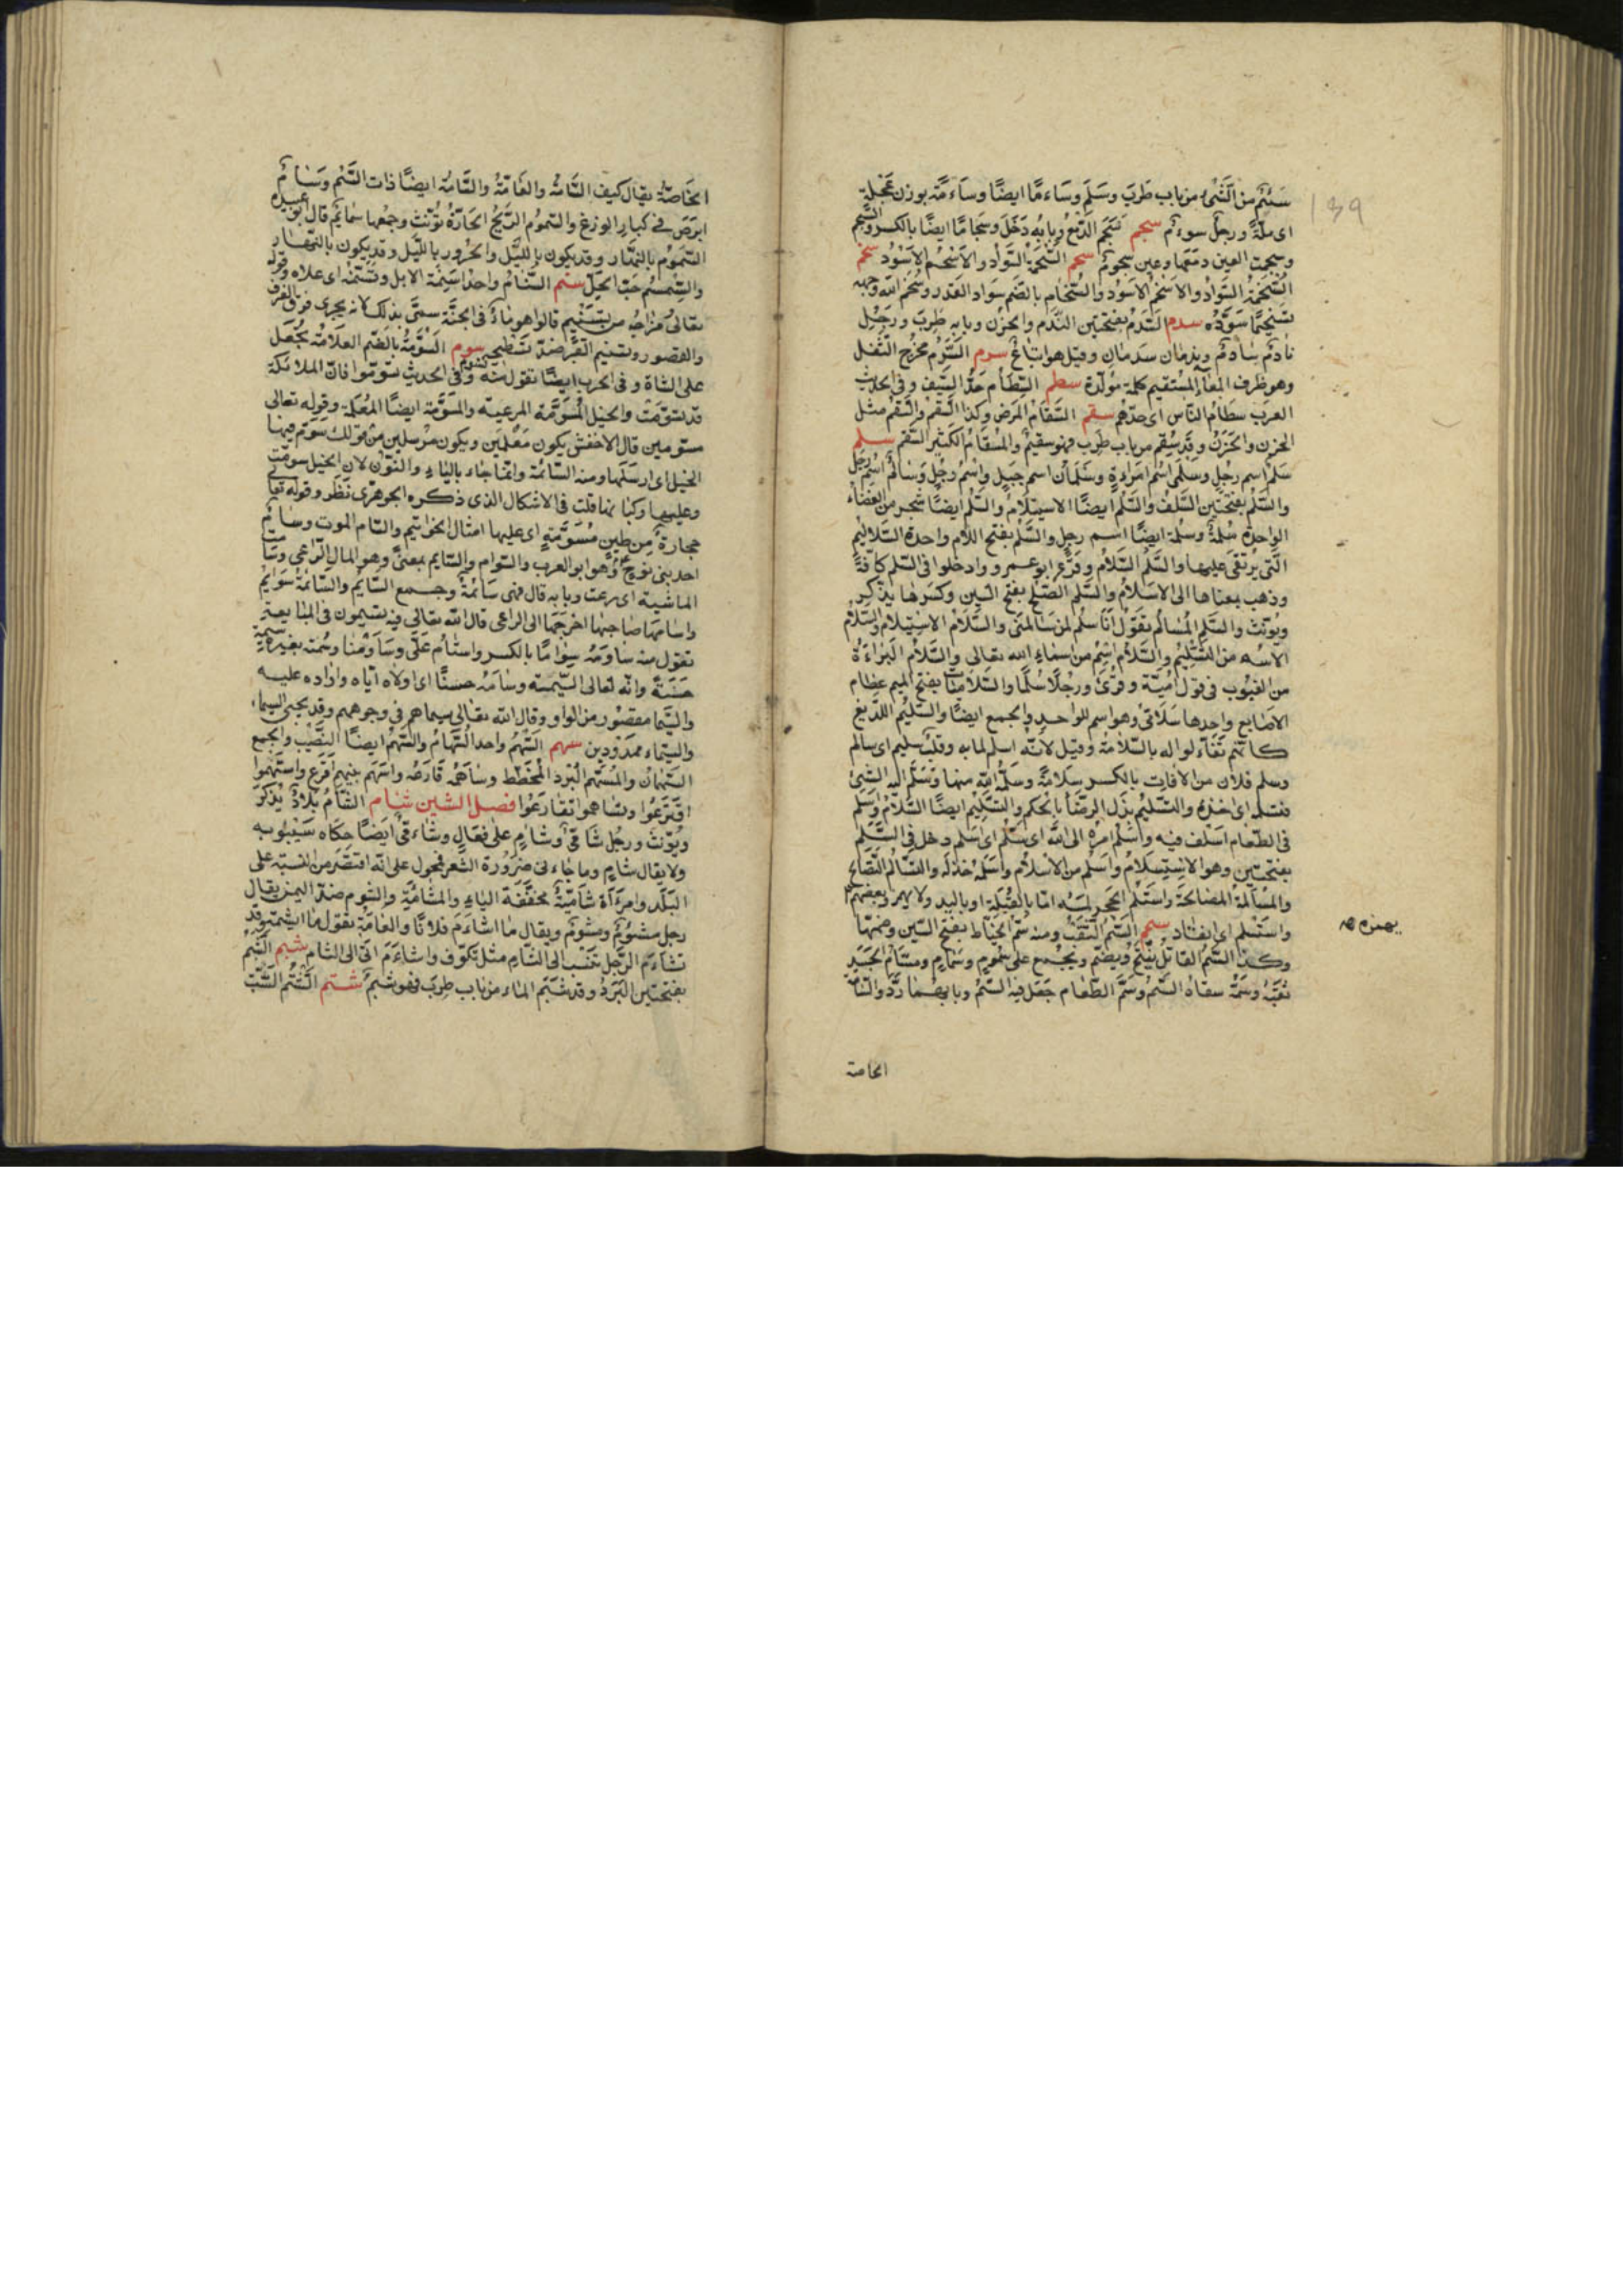 139
سَئِمَ من الشَّئ من باب طَرِبَ وسَلِمَ وسَاءَمًا ايضًا وسَاءَمَة بوزن عَجَلةٍ
اى ملّة ورجل سوءم سجم سَجَم الدّمعُ وبابُه دَخَلَ وسجَامًا ايضًا بالكسر والسَّجَم
وسجمت العين دمعَها وعين سجوم سحم السُّحْمَة السَّواد والأَسْحَم الاسْوَد سخم
السُّخمَة السَّوادُ والاسْخَمُ الاسْوَد والسُّخام بالضم سَواد القدر وسُخَّم اللّه وجهه
تسخيمًا سَوَّدَه سدم السَّدَم بفتحتين النَّدَم والحُزْن وبابه طَرِبَ ورجل
نادم سَادم وندمان سدمان وقيل هو اتباعٌ سرم السُّرْم مخرج الثُّفل
وهو طرف المعاء المستقيم كلمة مُولّدة سطم السِّطَام حَدّ السَّيف وفى الحديث
العرب سطام النّاس اى حدّهم سقم السَّقام المَرَض وكذا السُّقْمُ والسَّقَمُ مثل
الحزن والحَزَن وقد سَقِم من باب طَرِب فهو سقيم والمِسقَام الكثير السّقم سلم
سَلْم اسم رجل وسلمى اسم امرأة وسَلْمَان اسم جَبَلٍ واسم رجُلٍ وسَالم اسم رجل
والسَّلَم بفتحتين السَّلف والسَّلَم ايضًا الاستِلام والسَّلَم ايضًا شجر من العِضَاه
الواحدة سَلَمة وسَلَمة ايضًا اسم رجل والسُّلَّم بفتح اللام واحدة السَّلاليم
الّتى يُرتَقى عليها والسِّلْم السَّلام وقرأ ابو عمرو وادخلوا فى السّلم كافّةً
وذهب بمعناها الى الاسْلام والسَّلم الصُّلح بفتح السّين وكسَرها يذكر
ويُؤنّث والسِّلم المُسَالم تقول انَا سِلْم لمن سالمنى والسَّلام الاستِسلام والسَّلام
الاسم من التَّسْليم والسَّلام اسم من اسماء الله تعالى والسَّلام البَراءة
من العيُوب فى قول اُمَيّة وقُرِئَ ورَجُلًا سَلَمًا والسُّلاميات بفتح الميم عظام
الاصابع واحدها سُلَامَى وهو اسم للواحد والجمع ايضًا والسَّليم اللّديغ
كانّهم تفاءَلوا له بالسَّلامة وقيل لانّه اسلم لما به وقلب سليم اى سالم
وسلم فلان من الافات بالكسر سلامةً وسَلَّمه اللّه منها وسَلَّم اليه الشئ
فتسلمه اى اخذه والتَّسليم بذل الرّضَا بالحكم والتَّسليم ايضًا السَّلام واَسلم
فى الطّعام اَسْلف فيه واَسْلَم امرَه الى الله اى سَلَّم اى اسلم دخل فى السَّلَم
بفتحتين وهو الاستِسلام واَسلم من الاسلام واَسْلَمه خذله والتَّسَالُم التَّصَالُح
والمُسالَمة المصَالحَة واستَلَم الحَجر لمسَه امّا بالقُبلَة او باليد ولا يهمز وبعضهم
يهمزه صح
واستَسْلم اى انقاد سمم السَّمّ الثَّقب ومنه سَمّ الخياط بفتح السّين وضمّها
وكذا السَّمّ القاتل يُفتَح ويُضَمّ ويُجمع على سُمُومٍ وسِمَامٍ ومسَامّ الجَسَد
ثُقبه وسَمَّه سقاه السَّمّ وسَمَّ الطّعام جَعَل فيه السَّمّ وبابهما رَدَّ والسَّامّة
الخاصة
الخَاصَّة يقال كيف السَّامّة والعَامّة والسَّامّة ايضًا ذات السَّمّ وسَامّ
ابرَصَ من كبار الوزغ والسَّموم الرّيح الحَارّة تُؤنّث وجمعها سَمائم قال ابو عبيدة
السَّمُوم بالنّهَار وقد يكون باللّيل والحَرُور باللّيل وقد يكون بالنّهار
والسِّمسِم حَبّ الحَلّ سنم السَّنام واحد اسْنِمة الابل وتسنّمه اى علاه وقوله
تعالى مزاجه من تسْنيم قالوا هو ماء فى الجنّة سمّى بذلك لانه يجرى فوق الغرف
والقصور وتسنيم القبر ضدّ تسطيحه سوم السُّومَة بالضّم العلامة تُجعَل
على الشاة وفى الحرب ايضًا تقول منه تسوّم وفى الحديث تسوّموا فانّ الملائكة
قد تسوّمَتْ والخيل المُسوَّمة المرعيّة والمسَوَّمة ايضًا المُعلَمة وقوله تعالى
مسوّمين قال الاخفش يكون مُعْلَمين ويكون مرسلين من قولك سَوّم فيها
الخيل اى ارسَلها ومنه السَّائمة وانما جاء بالياء والنّون لان الخيل سوّمت
وعليها ركبانها قلت فى الاشكال الذى ذكره الجوهرى نَظَر وقوله تعا
حجارة من طين مُسَوَّمةٍ اى عليها امثال الخواتيم والسّام الموت وسام
احد بنى نوح عم وهو ابو العرب والسَّوام والسّايم بمعنًى وهو المال الرّاعى وسامت
الماشية اى رعت وبابه قال فهى سَائمة وجمع السّائم والسّائمة سَوايم
واسامها صاحبها اخرجَها الى الراعى قال اللّه تعالى فيه تسيمون فى المبايعة
تقول منه سَاومه سِوامًا بالكسر واستام عَلَىَّ وسَاوَمْنا وسُمته بعيره سيمةً
حَسَنَةً وانّه لغالى السّيمَة وسَامَهُ خسفًا اى اولاه ايّاه واراده عليه
والسِّيما مقصُور من الواو وقال الله تعالى سيماهم فى وجوههم وقد يجئ السيماء
والسيمياء ممدودين سهم السَّهْم واحد السِّهام والسَّهم ايضًا النّصيب والجمع
السُّهمان والمُسَهَّم البُرد المُخَطّط وسَاهَمَه قَارَعَه واسْهَم بينهم اَقرَع واستَهموا
اقتَرعُوا وتساهموا تقارَعُوا فصل الشين شام الشام بلاد يُذَكّر
ويُؤنّث ورجُل شَامىّ وشَآمٍ على فعَالٍ وشَاءمىّ ايضًا حكاه سيبويه
ولا يقال شأم وما جاء فى ضرورة الشعر محمول على انّه اقتصر من النسبة على
البَلد وامرَأة شَاميّة مخفّفة الياء والمشأمَة والشوم ضدّ اليمن يقال
رجل مشئوم ومشوم ويقال ما اشأَم فلانًا والعامّة تقول ما ايشمه وقد
تشاءم الرّجل تنسّب الى الشّام مثل تكوّف واشأمَ اتى الى الشام شبم الشَّبَم
بفتحتين البَرد وقد شَبِم الماء من باب طرب فهو شَبِم شتم الشَّتْم السَّبّ